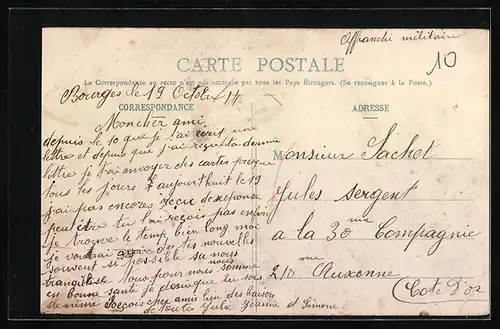 Affranchi militaire
10
CARTE POSTALE
La Correspondance au recto n'est pas acceptée par tous les Pays Étrangers. (Se renseigner à la Poste.)
Bourges le 19 Octobre 14
CORRESPONDANCE
Moncher ami
depuis le 10 que je t'ai écrit une
lettre et depuis que j'ai reçu ta dernière
lettre je t'ai envoyer des cartes presque
tous les jours & aujourdhuit le 19
j'ai pas encores reçu de réponse
peut être tu les reçois pas enfin
je trouve le temps bien long moi
je voudrai de tes nouvelles
souvent si possible sa nous
tranquilise nous pour nous sommes
en bonne santé je désire que tu sois
de même Reçois cher ami bien des baisers
de toute Jeanne et Simone
ADRESSE
Monsieur Sachet
Jules Sergent
a la 30me Compagnie
210me Auxonne
(Cote D'or